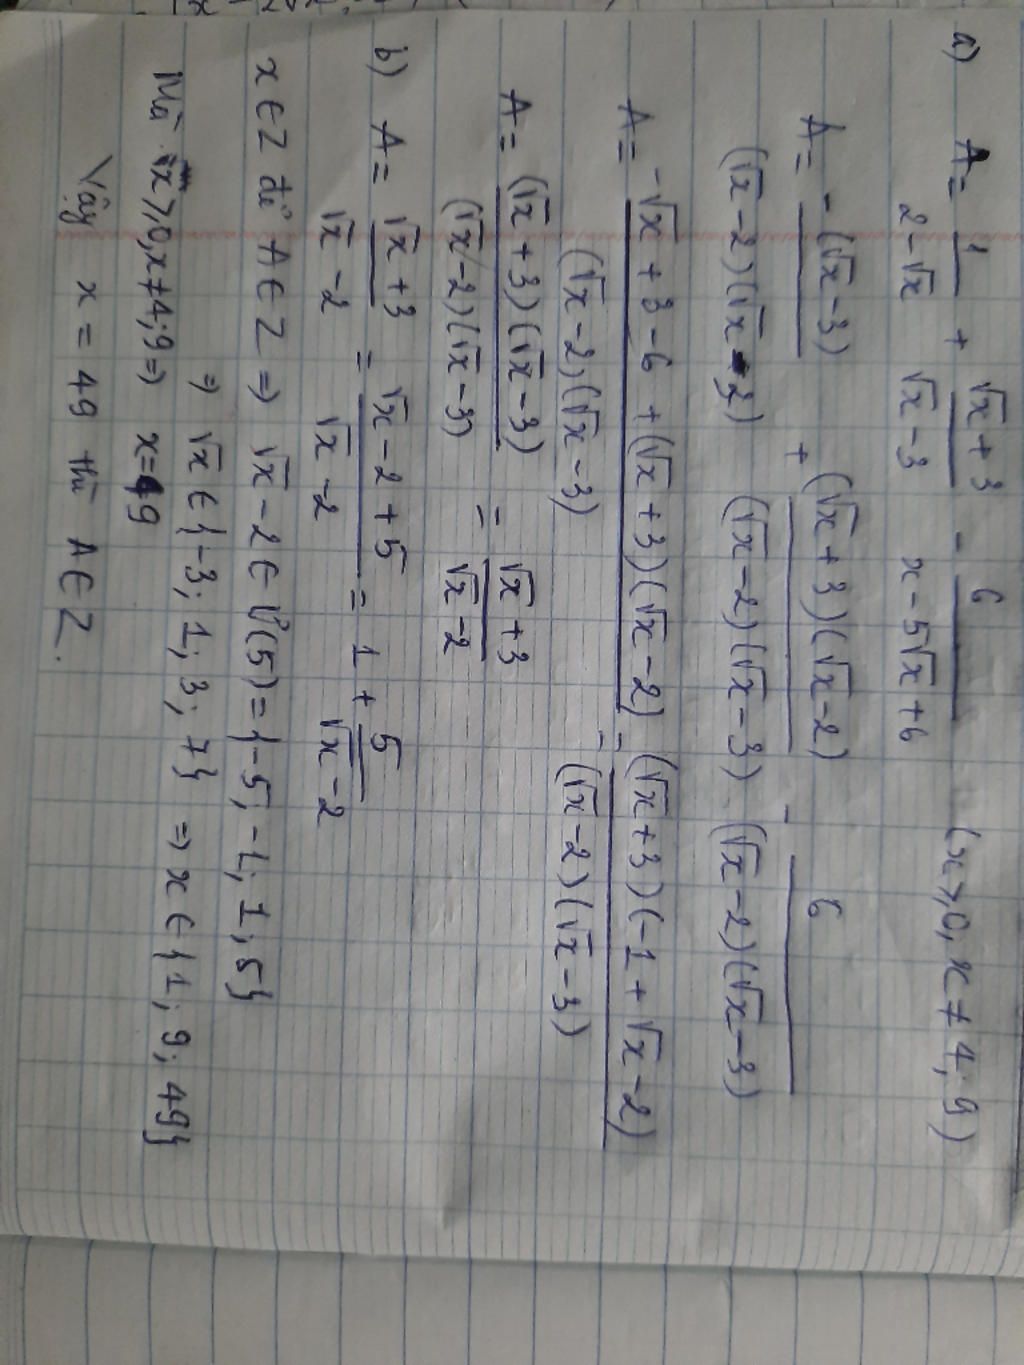 a) A = 1/(2-√x) + (√x+3)/(√x-3) - 6/(x-5√x+6) (x≥0, x≠4; 9)
A = -(√x-3)/((√x-2)(√x-3)) + (√x+3)(√x-2)/((√x-2)(√x-3)) - 6/((√x-2)(√x-3))
A = (-√x+3-6+(√x+3)(√x-2))/((√x-2)(√x-3)) = (√x+3)(-1+√x-2)/((√x-2)(√x-3))
A = (√x+3)(√x-3)/((√x-2)(√x-3)) = (√x+3)/(√x-2)
b) A = (√x+3)/(√x-2) = (√x-2+5)/(√x-2) = 1 + 5/(√x-2)
x∈Z để A∈Z => √x-2∈Ư(5)={-5; -1; 1; 5}
=> √x∈{-3; 1; 3; 7} => x∈{1; 9; 49}
Mà x≥0, x≠4; 9 => x=49
Vậy x = 49 thì A∈Z.